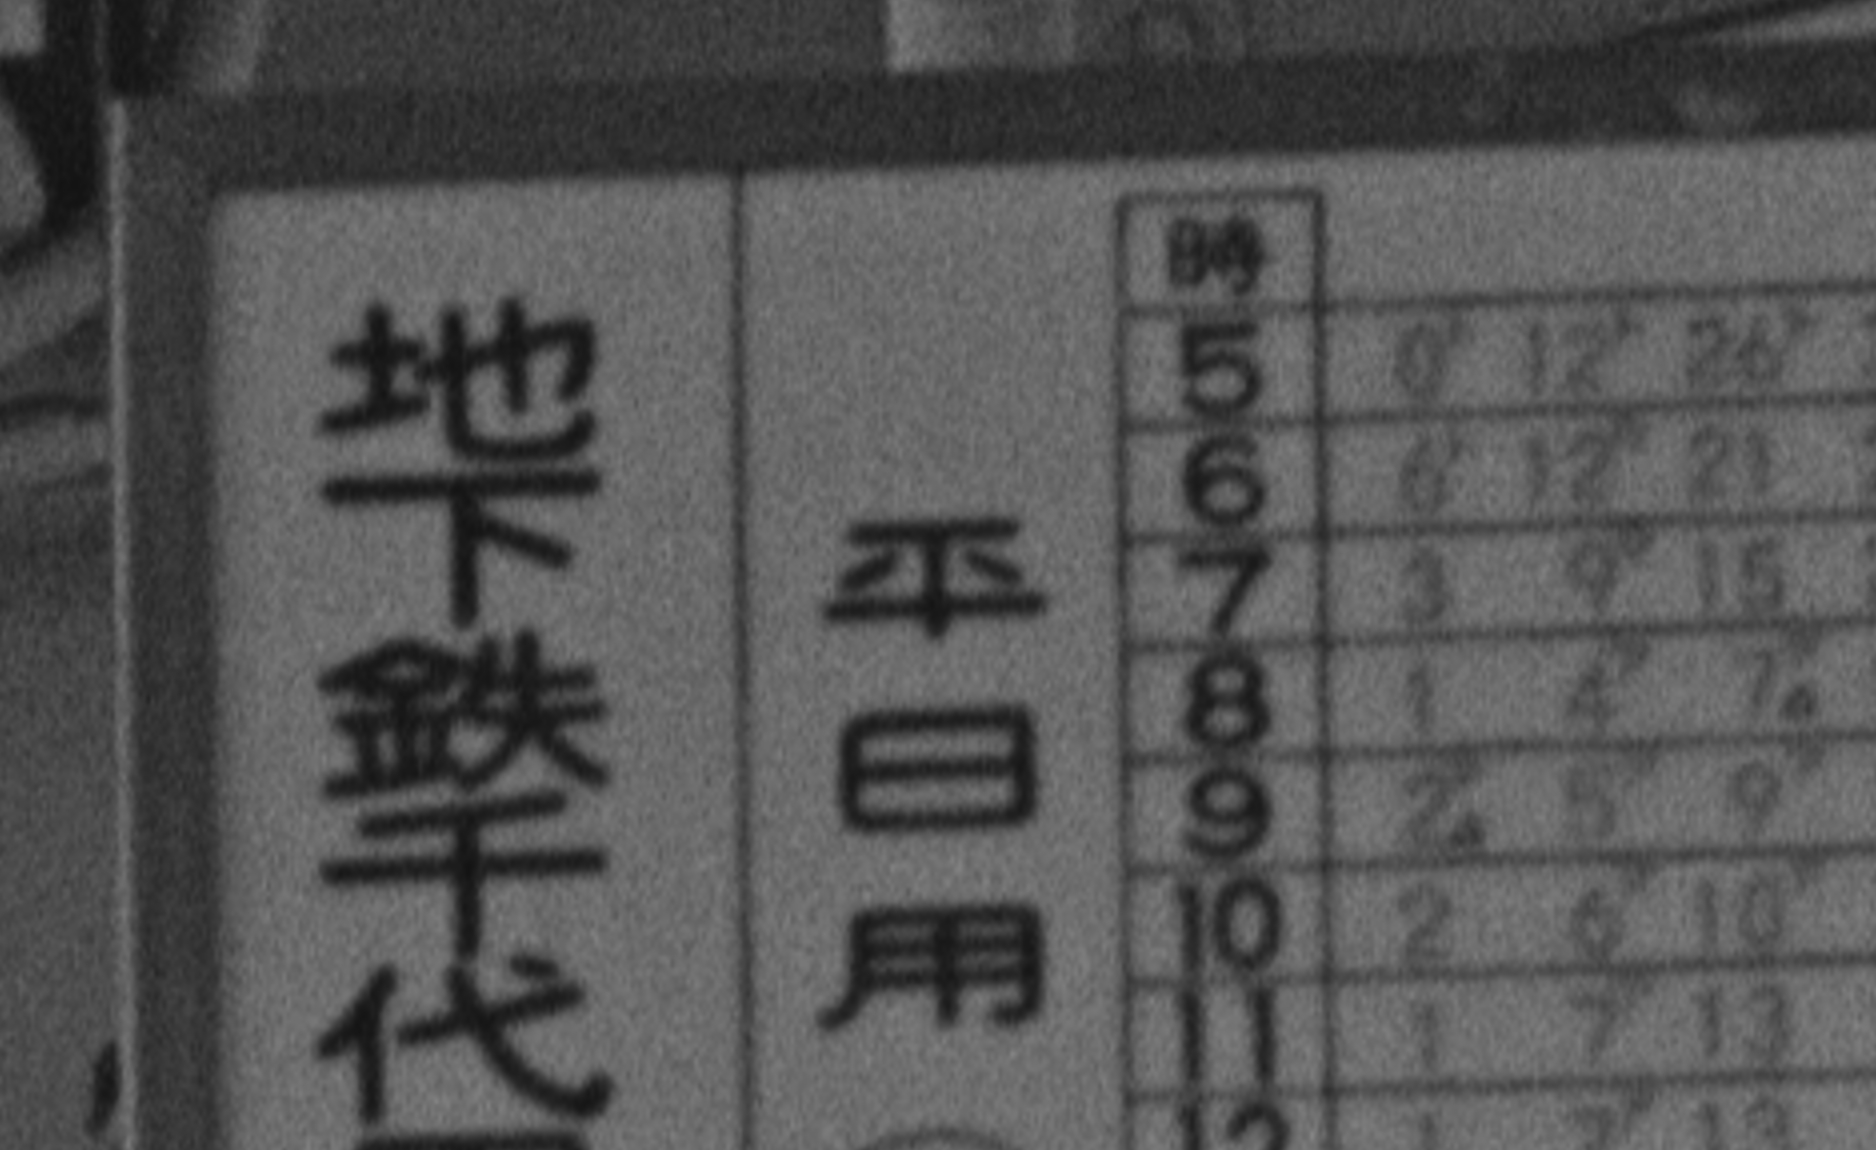 地下鉄千代
平日用
時
5 0 12 26
6 6 12 21
7 3 9 15
8 1 4 7
9 2 5 9
10 2 6 10
11 1 7 13
12 1 7 13